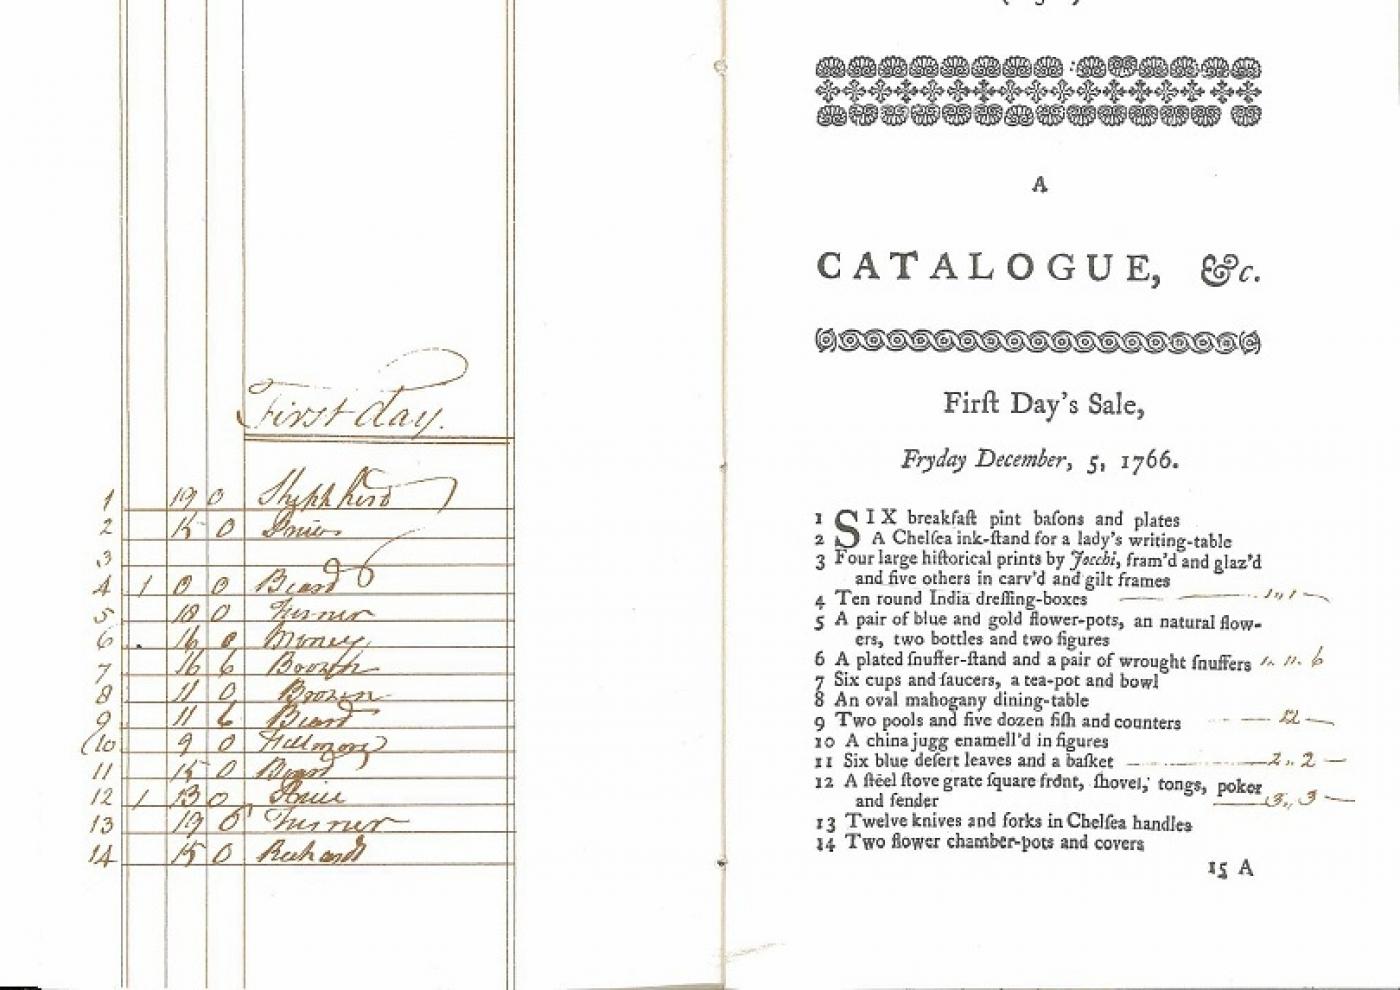 First day.
1 19 0 Shepherd
2 15 0
3
4 1 0 0 Beard
5 18 0 Turner
6 16 0 Money
7 16 6 Booth
8 11 0 Brown
9 11 6 Beard
10 9 0
11 15 0 Beard
12 1 13 0 Price
13 19 0 Turner
14 15 0 Richards
A
CATALOGUE, &c.
Firſt Day's Sale,
Fryday December, 5, 1766.
1 SIX breakfaſt pint baſons and plates
2 A Chelſea ink-ſtand for a lady's writing-table
3 Four large hiſtorical prints by Jocchi, fram'd and glaz'd
and five others in carv'd and gilt frames
4 Ten round India dreſſing-boxes — 1,, 1 —
5 A pair of blue and gold flower-pots, an natural flow-
ers, two bottles and two figures
6 A plated ſnuffer-ſtand and a pair of wrought ſnuffers 1,, 11,, 6
7 Six cups and ſaucers, a tea-pot and bowl
8 An oval mahogany dining-table
9 Two pools and five dozen fiſh and counters — 12 —
10 A china jugg enamell'd in figures
11 Six blue deſert leaves and a baſket — 2,, 2 —
12 A ſteel ſtove grate ſquare front, ſhovel, tongs, poker
and fender — 3,, 3 —
13 Twelve knives and forks in Chelſea handles
14 Two flower chamber-pots and covers
15 A